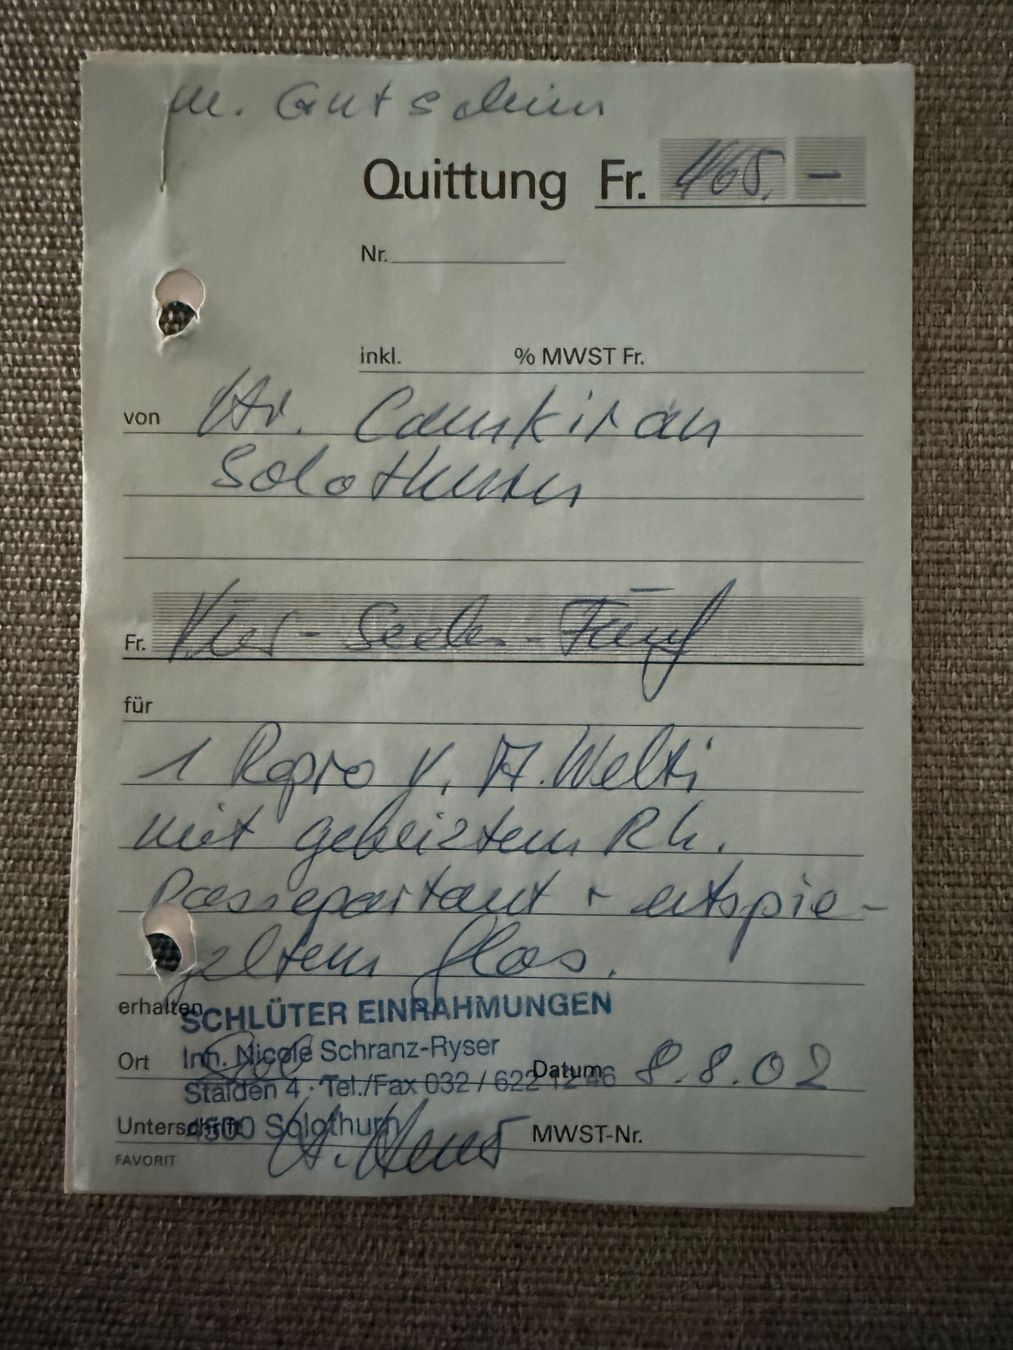 m. Gutschein
Quittung Fr. 465. –
Nr.
inkl. % MWST Fr.
von Hr. Camkiran
Solothurn
Fr. Vier - Sechs - Fünf
für
1 Repro v. A. Welti
mit gebeiztem Rh.
Passepartout + entspie-
geltem Glas.
erhalten
SCHLÜTER EINRAHMUNGEN
Inh. Nicole Schranz-Ryser
Ort Datum 8.8.02
Stalden 4 · Tel./Fax 032 / 622 12 46
4500 Solothurn
Unterschrift MWST-Nr.
FAVORIT